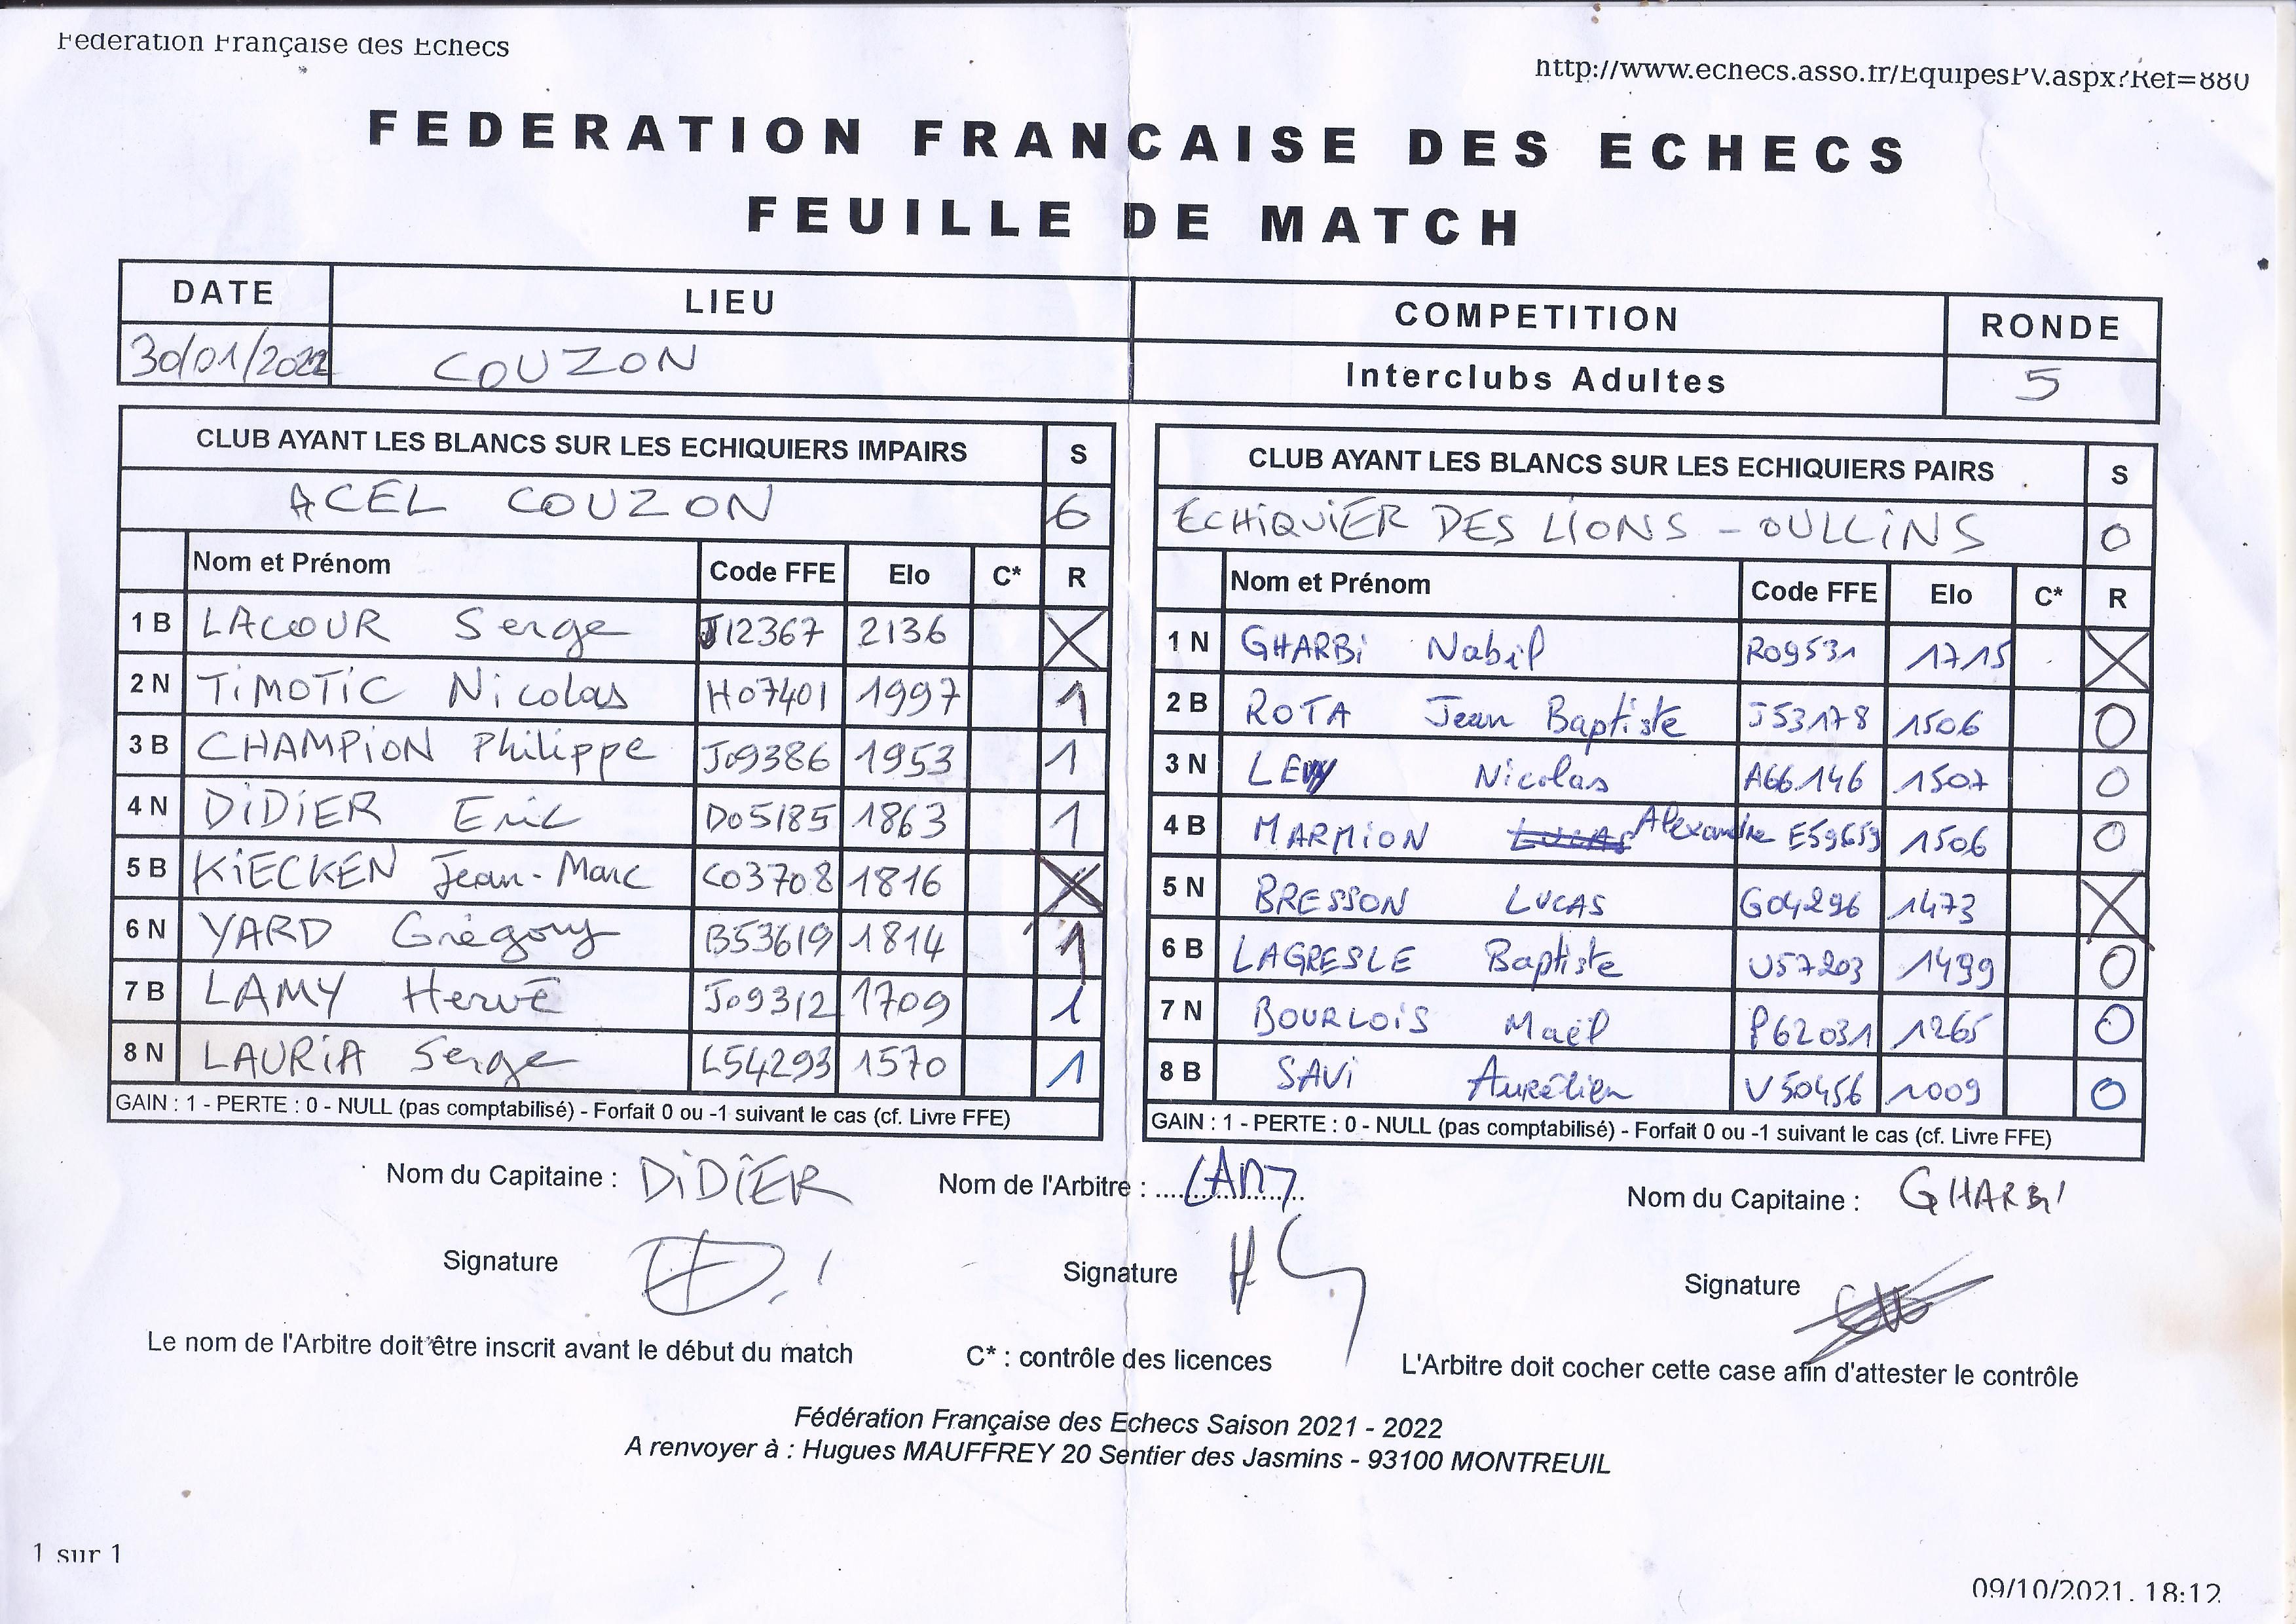 Federation Française des Echecs
http://www.echecs.asso.fr/EquipesPV.aspx?Ref=880
FEDERATION FRANCAISE DES ECHECS
FEUILLE DE MATCH
DATE LIEU COMPETITION RONDE
30/01/2022 COUZON Interclubs Adultes 5
CLUB AYANT LES BLANCS SUR LES ECHIQUIERS IMPAIRS S
ACEL COUZON 6
Nom et Prénom Code FFE Elo C* R
1 B LACOUR Serge J12367 2136 X
2 N TiMOTiC Nicolas H07401 1997 1
3 B CHAMPiON Philippe J09386 1953 1
4 N DiDiER Eric D05185 1863 1
5 B KiECKEN Jean-Marc C03708 1816 X
6 N YARD Grégory B53619 1814 1
7 B LAMY Hervé J09312 1709 1
8 N LAURiA Serge L54293 1570 1
GAIN : 1 - PERTE : 0 - NULL (pas comptabilisé) - Forfait 0 ou -1 suivant le cas (cf. Livre FFE)
CLUB AYANT LES BLANCS SUR LES ECHIQUIERS PAIRS S
ECHiQUiER DES LiONS - OULLiNS 0
Nom et Prénom Code FFE Elo C* R
1 N GHARBi Nabil R09531 1715 X
2 B ROTA Jean Baptiste J53178 1506 0
3 N LEVY Nicolas A66146 1507 0
4 B MARMiON Lucas Alexandre E59659 1506 0
5 N BRESSON LUCAS G04296 1473 X
6 B LAGRESLE Baptiste U57203 1499 0
7 N BOURLOiS Maël P62031 1265 0
8 B SAVi Aurélien V50456 1009 0
GAIN : 1 - PERTE : 0 - NULL (pas comptabilisé) - Forfait 0 ou -1 suivant le cas (cf. Livre FFE)
Nom du Capitaine : DiDiER Nom de l'Arbitre : LAMY Nom du Capitaine : GHARBi
Signature Signature Signature
Le nom de l'Arbitre doit être inscrit avant le début du match C* : contrôle des licences L'Arbitre doit cocher cette case afin d'attester le contrôle
Fédération Française des Echecs Saison 2021 - 2022
A renvoyer à : Hugues MAUFFREY 20 Sentier des Jasmins - 93100 MONTREUIL
1 sur 1
09/10/2021, 18:12